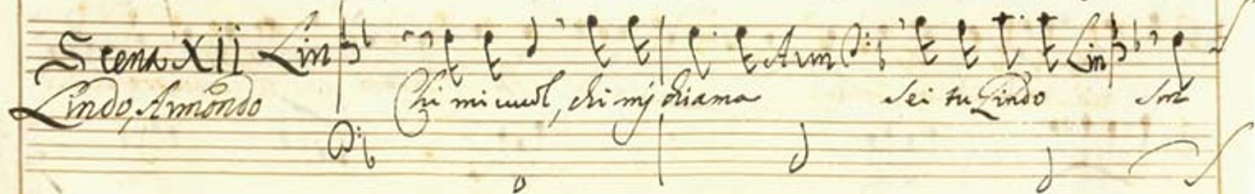 Scena XII Lin Arm Lin
Lindo, Armondo Chi mi vuol, chi mi chiama sei tu Lindo Son